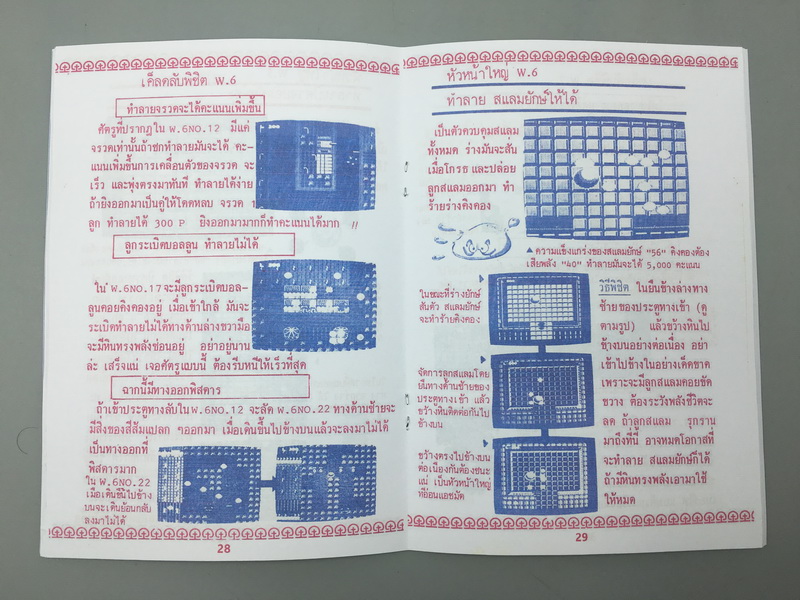 เคล็ดลับพิชิต W.6
ทำลายจรวดจะได้คะแนนเพิ่มขึ้น
ศัตรูที่ปรากฏใน W.6NO.12 มีแค่
จรวดเท่านั้นถ้าชกทำลายมันจะได้ คะ-
แนนเพิ่มขึ้นการเคลื่อนตัวของจรวด จะ
เร็ว และพุ่งตรงมาทันที ทำลายได้ง่าย
ถ้ายิงออกมาเป็นคู่ให้โดดหลบ จรวด 1
ลูก ทำลายได้ 300 P ยิงออกมามากก็ทำคะแนนได้มาก //
ลูกระเบิดบอลลูน ทำลายไม่ได้
ใน W.6NO.17จะมีลูกระเบิดบอล-
ลูนคอยคิงคองอยู่ เมื่อเข้าใกล้ มันจะ
ระเบิดทำลายไม่ได้ทางด้านล่างขวามือ
จะมีหินทรงพลังซ่อนอยู่ อย่าอยู่นาน
ล่ะ เสร็จแน่ เจอศัตรูแบบนี้ ต้องรีบหนีให้เร็วที่สุด
ฉากนี้มีทางออกพิสดาร
ถ้าเข้าประตูทางลับใน W.6NO.12 จะลัด W.6NO.22 ทางด้านซ้ายจะ
มีสิ่งของสีส้มแปลก ๆออกมา เมื่อเดินขึ้นไปข้างบนแล้วจะลงมาไม่ได้
เป็นทางออกที่
พิสดารมาก
ใน W.6NO.22
เมื่อเดินขึ้นไปข้าง
บนจะเดินย้อนกลับ
ลงมาไม่ได้
28
หัวหน้าใหญ่ W.6
ทำลาย สแลมยักษ์ให้ได้
เป็นตัวควบคุมสแลม
ทั้งหมด ร่างมันจะสั่น
เมื่อโกรธ และปล่อย
ลูกสแลมออกมา ทำ
ร้ายร่างคิงคอง
▲ ความแข็งแกร่งของสแลมยักษ์ "56" คิงคองต้อง
เสียพลัง "40" ทำลายมันจะได้ 5,000 คะแนน
ในขณะที่ร่างยักษ์
สั่นตัว สแลมยักษ์
จะทำร้ายคิงคอง
จัดการลูกสแลมโดย
ยืนทางด้านซ้ายของ
ประตูทางเข้า แล้ว
ขว้างหินติดต่อกันไป
ข้างบน
ขว้างตรงไปข้างบน
ต่อเนื่องกันต้องชนะ
แน่ เป็นหัวหน้าใหญ่
ที่อ่อนแอชมัด
วิธีพิชิต ในยืนข้างล่างทาง
ซ้ายของประตูทางเข้า (ดู
ตามรูป) แล้วขว้างหินไป
ข้างบนอย่างต่อเนื่อง อย่า
เข้าไปข้างในอย่างเด็ดขาด
เพราะจะมีลูกสแลมคอยขัด
ขวาง ต้องระวังพลังชีวิตจะ
ลด ถ้าลูกสแลม รุกราน
มาถึงที่นี่ อาจหมดโอกาสที่
จะทำลาย สแลมยักษ์ก็ได้
ถ้ามีหินทรงพลังเอามาใช้
ให้หมด
29